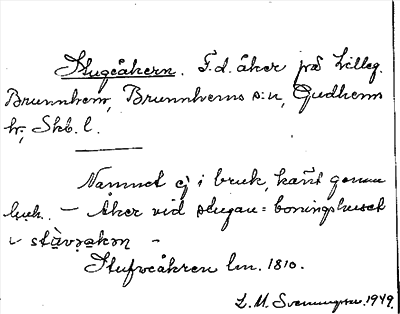 Stugeåkern. F.d. åker på Lilleg.
Brunnhem, Brunnhems s:n, Gudhems
hr, Skb. l.
Namnet ej i bruk, känt genom
uk. – Åker vid stugan = boningshuset
Stufveåkren lm. 1810.
L. M. Svenungsson 1949.